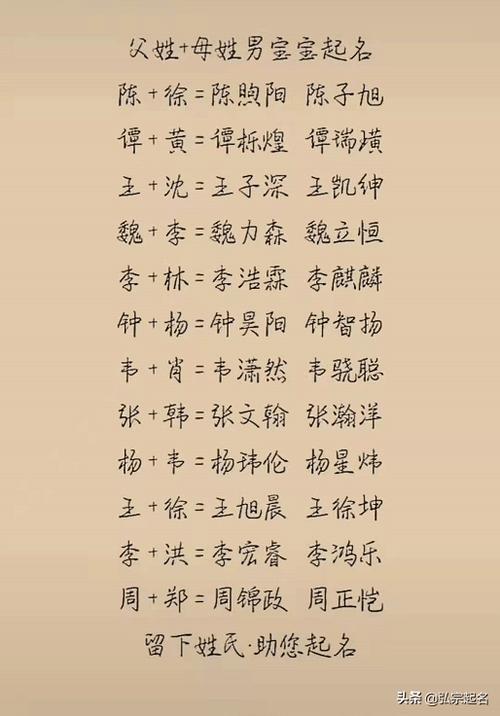 父姓+母姓男宝宝起名
陈+徐=陈煦阳 陈子旭
谭+黄=谭栎煌 谭瑞璜
王+沈=王子深 王凯绅
魏+李=魏力森 魏立恒
李+林=李浩霖 李麒麟
钟+杨=钟昊阳 钟智扬
韦+肖=韦潇然 韦骁聪
张+韩=张文翰 张瀚洋
杨+韦=杨玮伦 杨星炜
王+徐=王旭晨 王徐坤
李+洪=李宏睿 李鸿乐
周+郑=周锦政 周正恺
留下姓氏·助您起名
头条@弘宗起名